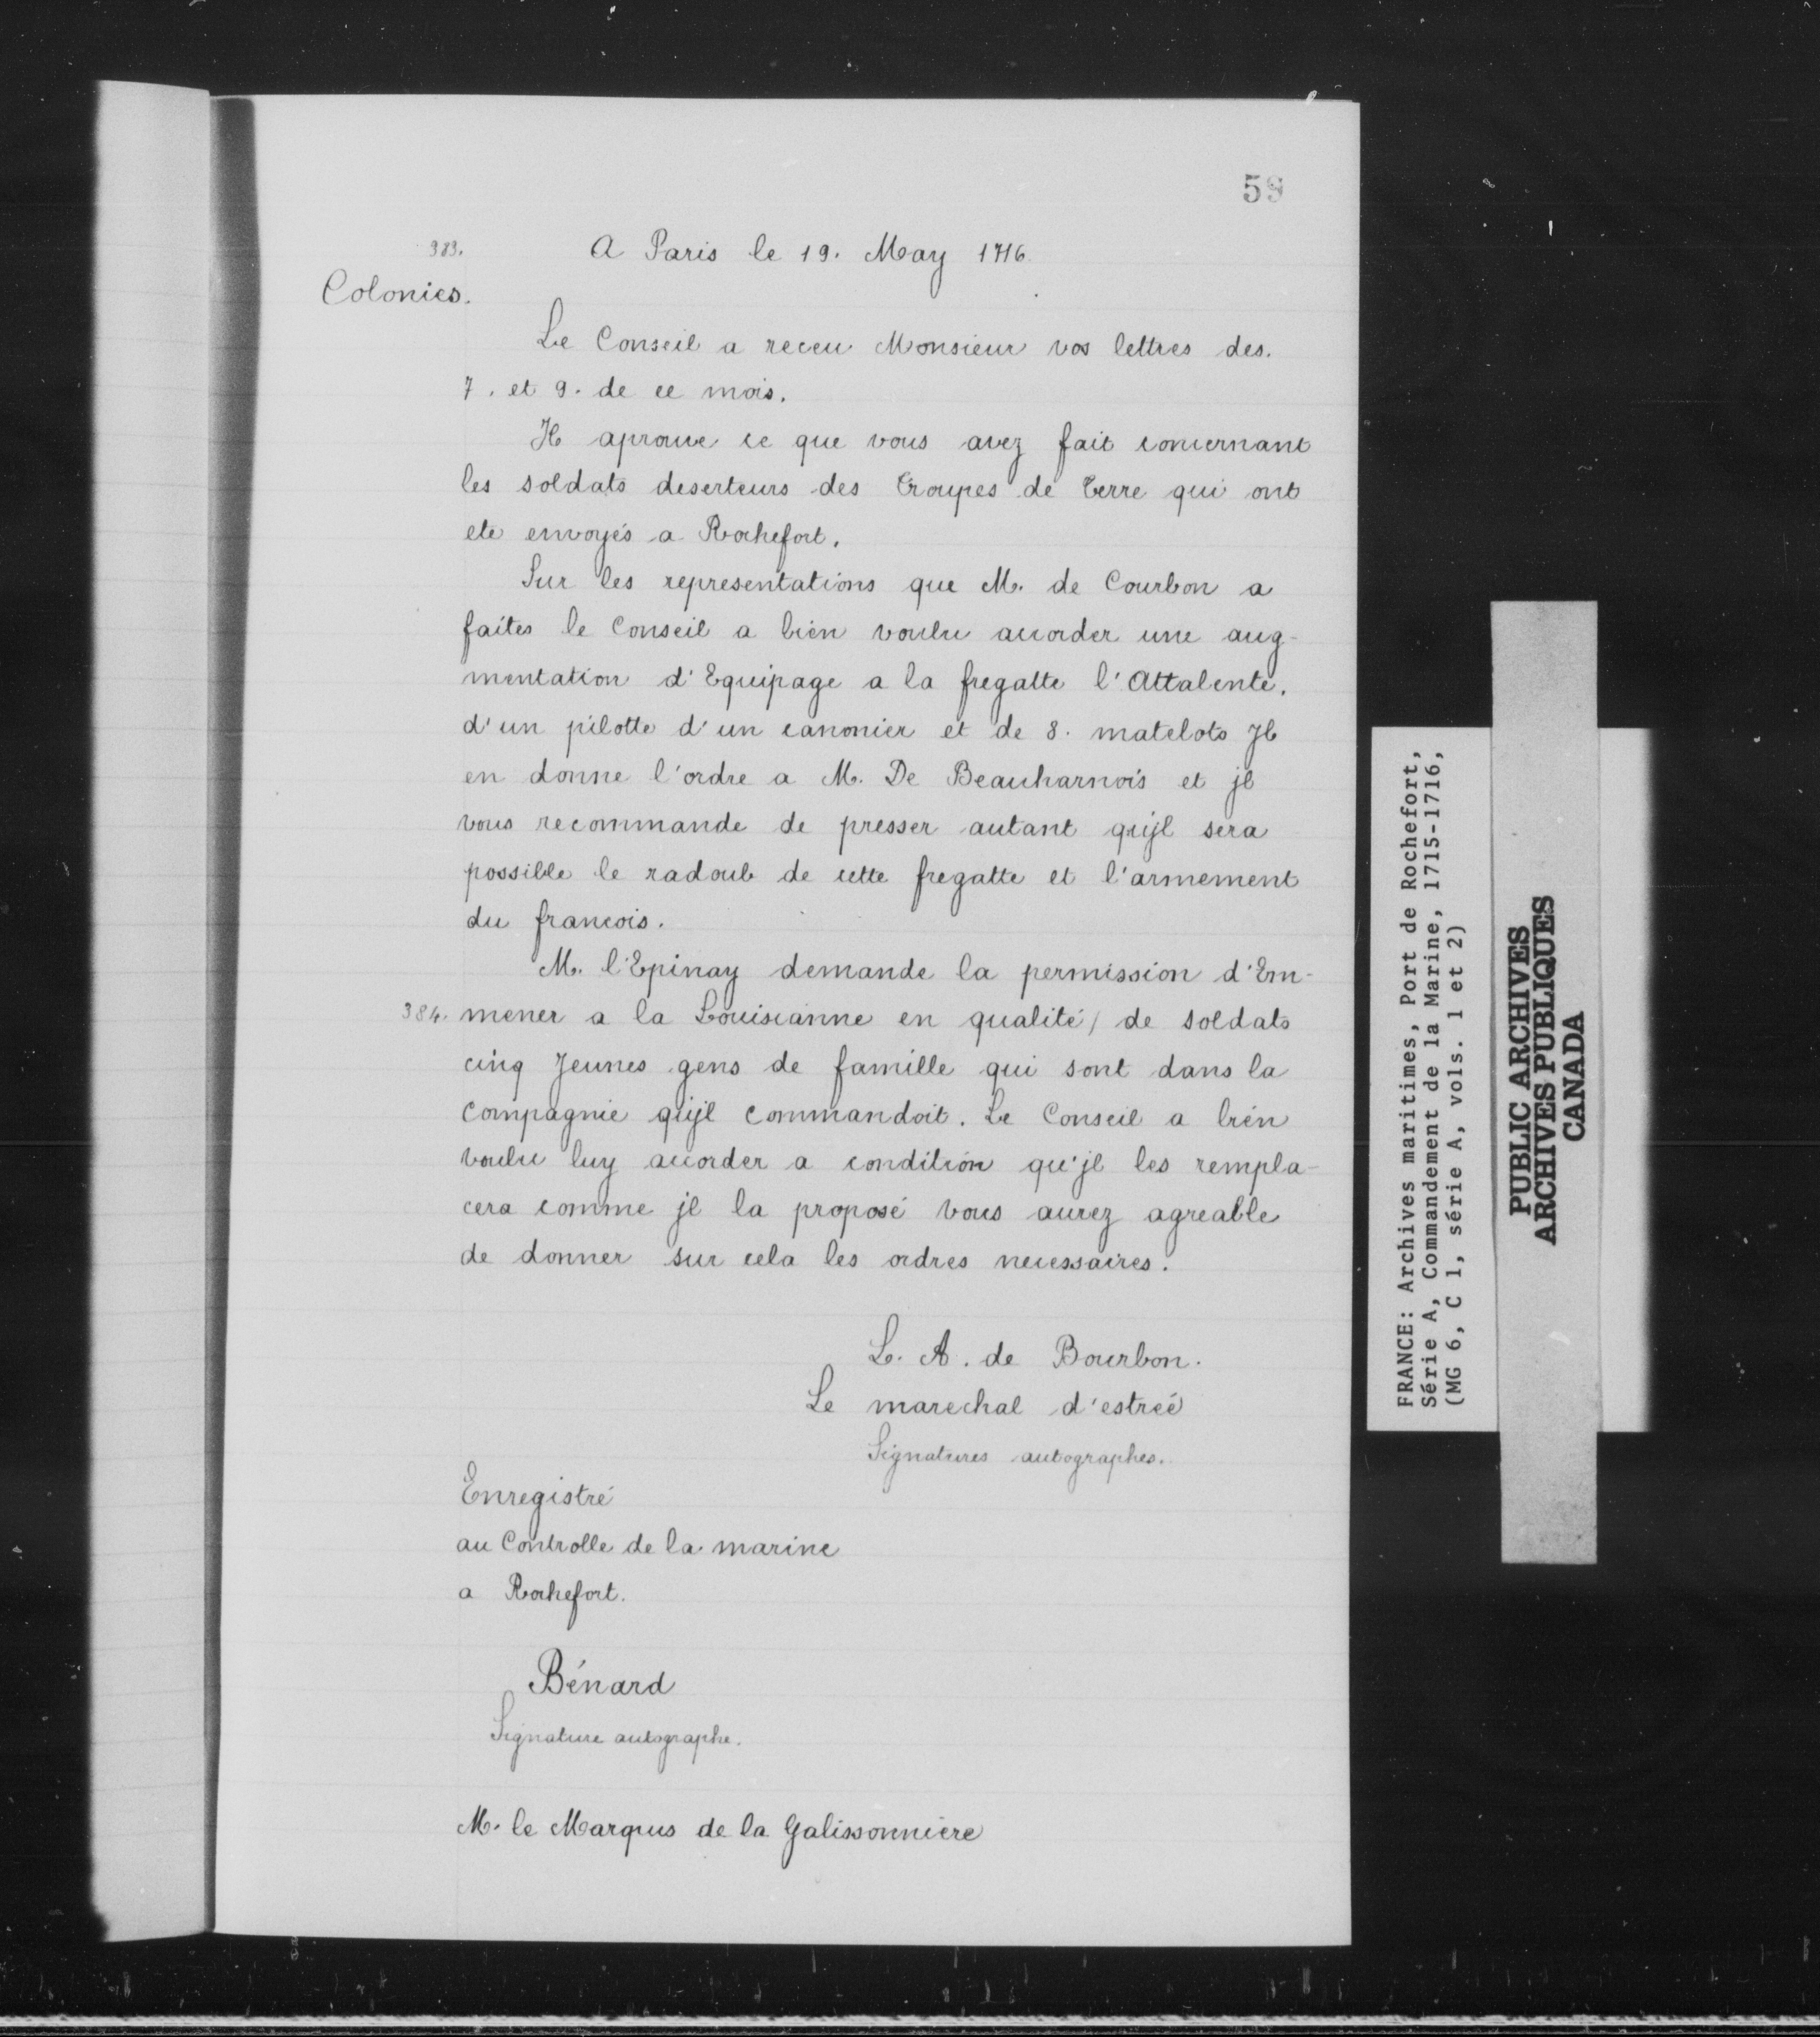 59
383.
A Paris le 19. May 1716.
Colonies.
Le Conseil a receu Monsieur vos lettres des.
7. et 9. de ce mois.
Jl aprouve ce que vous avez fait concernant
les soldats deserteurs des Troupes de Terre qui ont
ete envoyés a Rochefort.
Sur les representations que M. de Courbon a
faites le Conseil a bien voulu accorder une aug-
mentation d'Equipage a la fregatte l'Attalente,
d'un pilotte d'un canonier et de 8. matelots Jl
en donne l'ordre a M. De Beauharnois et jl
vous recommande de presser autant qu'jl sera
possible le radoub de cette fregatte et l'armement
du francois.
M. l'Epinay demande la permission d'Em-
384. mener a la Louisianne en qualité / de soldats
cinq Jeunes gens de famille qui sont dans la
compagnie qu'jl commandoit. Le Conseil a bien
voulu luy accorder a condition qu'jl les rempla-
cera comme jl la proposé vous aurez agreable
de donner sur cela les ordres necessaires.
L. A. de Bourbon.
Le marechal d'estreé
Signatures autographes.
Enregistré
au Controlle de la marine
a Rochefort.
Bénard
Signature autographe.
M. le Marquis de la Galissonniere
FRANCE: Archives maritimes, Port de Rochefort,
Série A, Commandement de la Marine, 1715-1716,
(MG 6, C 1, série A, vols. 1 et 2)
PUBLIC ARCHIVES
ARCHIVES PUBLIQUES
CANADA